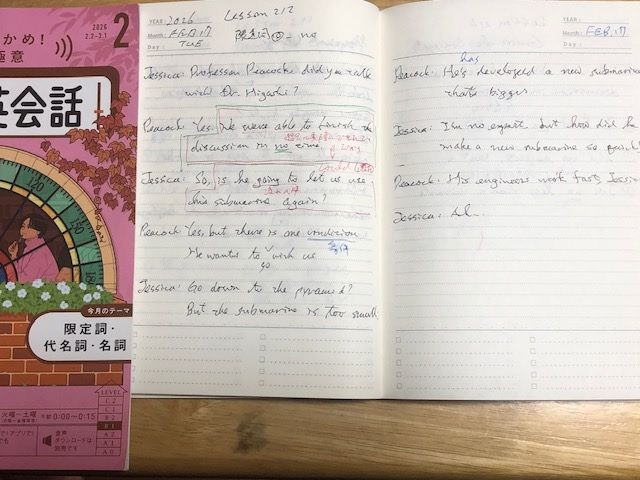 2026
2.2–3.1
2
かめ！
極意
英会話
今月のテーマ
限定詞・
代名詞・名詞
LEVEL
C2
C1
B2
B1
A2
A1
A0
火曜~土曜
午前0:00~0:15
音声
ダウンロードは
別売です
YEAR: 2026
Month: FEB.17
Day: TUE
Lesson 212
限定詞② - no
Jessica: Professor Peacock, did you talk
with Dr. Higashi?
Peacock: Yes. We were able to finish the
discussion in no time.
Jessica: So, is he going to let us use
his submarine again?
Peacock: Yes, but there is one condition
He wants to go with us
Jessica: Go down to the pyramid?
But the submarine is too small
YEAR:
Month: FEB.17
Day:
Peacock: He's has developed a new submarine
that's bigger
Jessica: I'm no expert, but how did he
make a new submarine so quickly
Peacock: His engineers work fast, Jessica
Jessica: